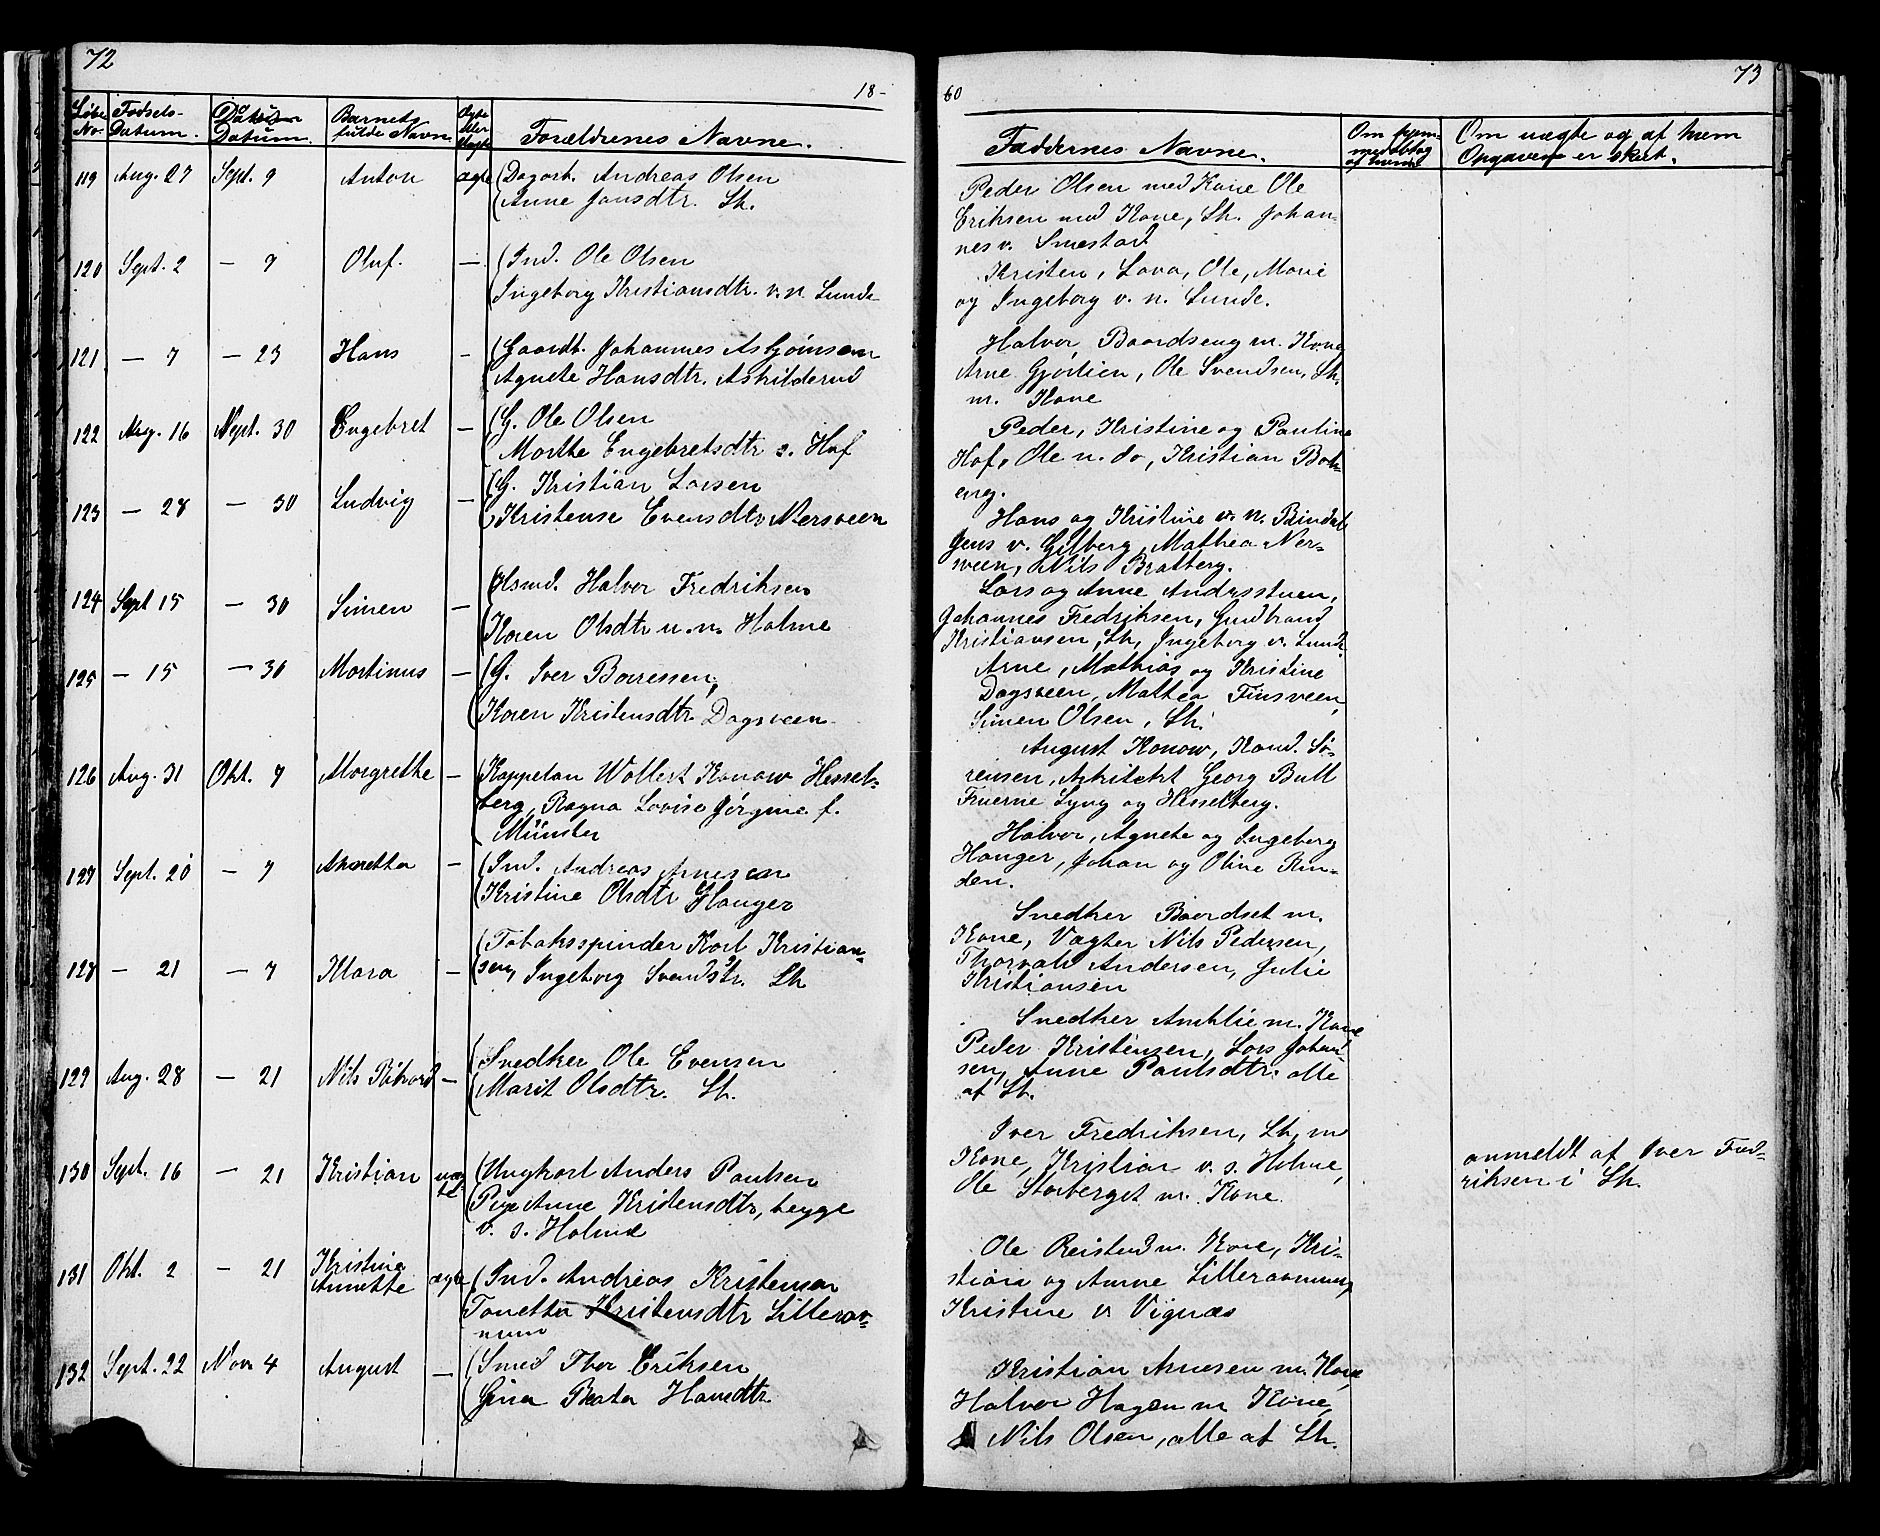 72
18-
Løbe No.
Fødsels-Datum.
Daabs Datum.
Barnets fulde Navn
Ægte eller Uægte
Forældrenes Navne.
119 Aug. 27 Sept. 9 Anton ægte Dagarb. Andreas Olsen
Anne Jansdtr. Lh.
120 Sept. 2 — 9 Oluf. — Ind. Ole Olsen
Ingeborg Kristiansdtr. v. n. Lunde
121 — 7 — 23 Hans — Gaardb. Johannes Asbjørnsen
Agnete Hansdtr. Askilderud
122 Aug. 16 Sept. 30 Engebret — G. Ole Olsen
Marthe Engebretsdtr s. Hof
123 — 28 — 30 Ludvig — G. Kristian Larsen
Kristense Evensdtr Nersveen
124 Sept 15 — 30 Simen — Husmd. Halvor Fredriksen
Karen Olsdtr n. n. Holme
125 — 15 — 30 Martinus — G. Iver Baressen,
Karen Kristensdtr. Dagsveen
126 Aug. 31 Okt. 7 Margrethe — Kappelan Wollert Konow Hessel-
berg, Ragna Lovise Jørgine f.
Münster
127 Sept. 20 — 7 Annetta — Ind. Andreas Arnesen
Kristine Olsdtr Hauger
128 — 21 — 7 Klara — Tobaksspinder Karl Kristian-
sen, Ingeborg Svendsdtr. Lh
129 Aug. 28 — 21 Nils Rikard — Snedker Ole Evensen
Marit Olsdtr. Lh.
130 Sept. 16 — 21 Kristian uægte Ungkarl Anders Paulsen
Pige Anne Kristensdtr, begge
v. s. Holme
131 Okt. 2 — 21 Kristine Annette ægte Ind. Andreas Kristensen
Tonetta Kristensdtr Lillerav-
num
132 Sept. 22 Nov. 4 August — Smed Thor Eriksen
Gina Beata Hansdtr.
60
73
Faddernes Navne.
Om hjem-
medøbt og
af hvem
Om uægte og af hvem
Opgaven er skeet.
Peder Olsen med Kone Ole
Eriksen med Kone, Lh. Johan-
nes v. Smestad
Kristen, Lava, Ole, Marie
og Ingeborg v. n. Lunde.
Halvor Baardseng m. Kone
Arne Gjørlien, Ole Svendsen, Lh.
m. Kone
Peder, Kristine og Pauline
Hof, Ole n. do, Kristian Bak-
eng.
Hans og Kristine v. n. Rindal
Jens v. Gilberg, Mathea Ner-
sveen, Nils Bratberg.
Lars og Anne Andersstuen,
Johannes Fredriksen, Gudbrand
Kristiansen, Lh, Ingeborg v. Lunde.
Arne, Mathias og Kristine
Dagsveen, Mathea Finsveen,
Simen Olsen, Lh.
August Konow, Kand. Sø-
rensen, Arkitekt Georg Bull
Fruerne Lyng og Hesselberg.
Halvor, Agnete og Ingeborg
Hauger, Johan og Oline Rin-
den.
Snedker Baardset m.
Kone, Vægter Nils Pedersen,
Thorvald Andersen, Julie
Kristiansen
Snedker Amblie m. Kone
Peder Kristensen, Lars Johan-
sen, Anne Paulsdtr. alle
af Lh.
Iver Fredriksen, Lh, m
Kone, Kristian v. s. Holme,
Ole Storberget m. Kone
anmeldt af Iver Fred-
riksen i Lh.
Ole Reistad m. Kone, Kri-
stian og Anne Lilleravnum,
Kristine v. Vignæs
Kristian Arnesen m. Kone
Halvor Hagen m Kone,
Nils Olsen, alle af Lh.